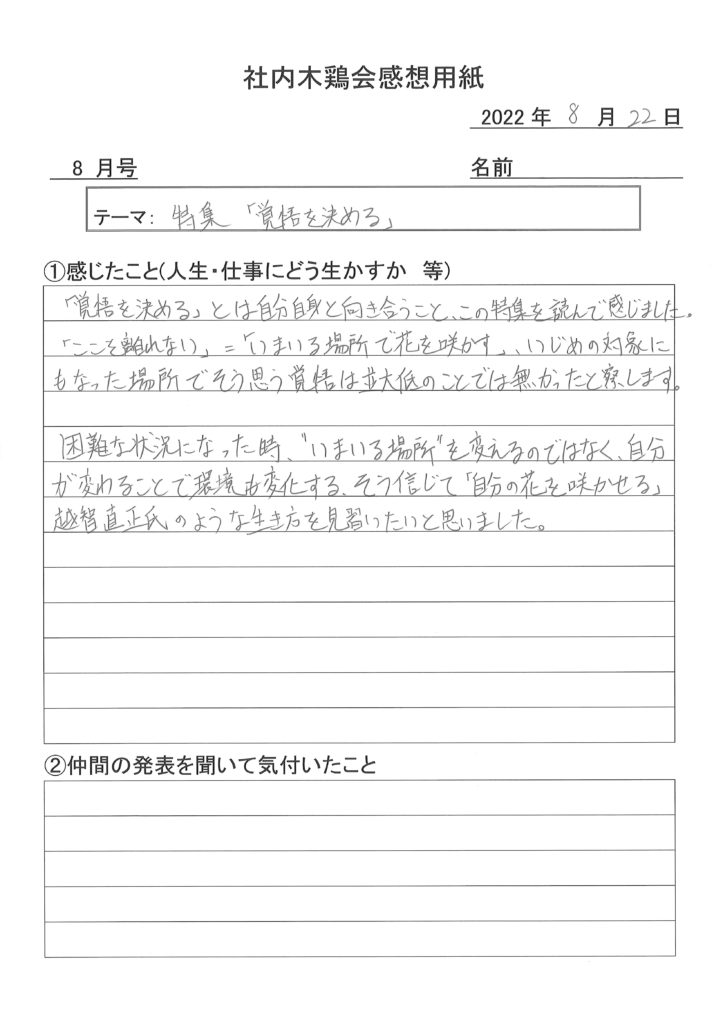 社内木鶏会感想用紙
2022 年 8 月 22 日
8 月号 名前
テーマ: 特集 「覚悟を決める」
①感じたこと(人生・仕事にどう生かすか 等)
「覚悟を決める」とは自分自身と向き合うこと、この特集を読んで感じました。
「ここを離れない」=「いまいる場所で花を咲かす」、いじめの対象に
もなった場所でそう思う覚悟は並大低のことでは無かったと察します。
困難な状況になった時、"いまいる場所"を変えるのではなく、自分
が変わることで環境も変化する、そう信じて「自分の花を咲かせる」
越智直正氏のような生き方を見習いたいと思いました。
②仲間の発表を聞いて気付いたこと